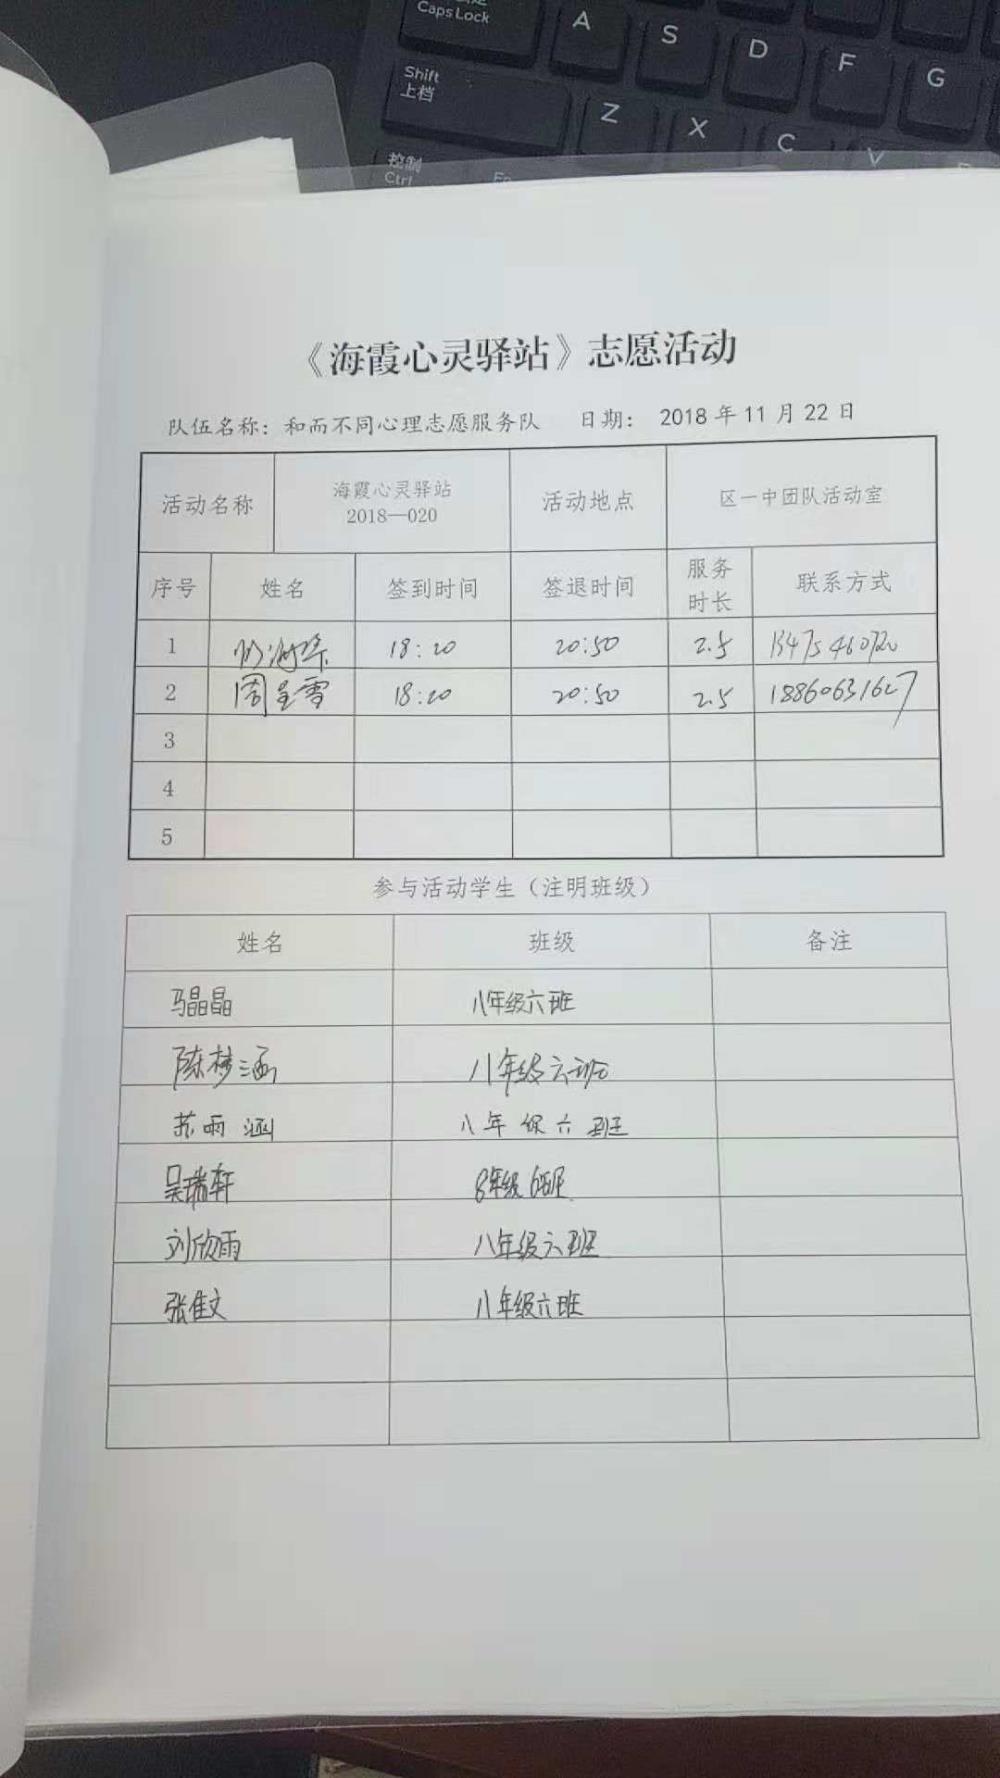 Caps Lock A S D F G
Shift
上档 Z X C V
控制
Ctrl Fn
《海霞心灵驿站》志愿活动
队伍名称：和而不同心理志愿服务队 日期： 2018 年 11 月 22 日
活动名称 海霞心灵驿站 2018—020 活动地点 区一中团队活动室
序号 姓名 签到时间 签退时间 服务时长 联系方式
1 18:20 20:50 2.5 13475460720
2 周呈雪 18:20 20:50 2.5 18860631627
3
4
5
参与活动学生（注明班级）
姓名 班级 备注
马晶晶 八年级六班
陈梦涵 八年级六班
苏雨涵 八年级六班
吴瑞轩 8年级6班
刘欣雨 八年级六班
张佳文 八年级六班